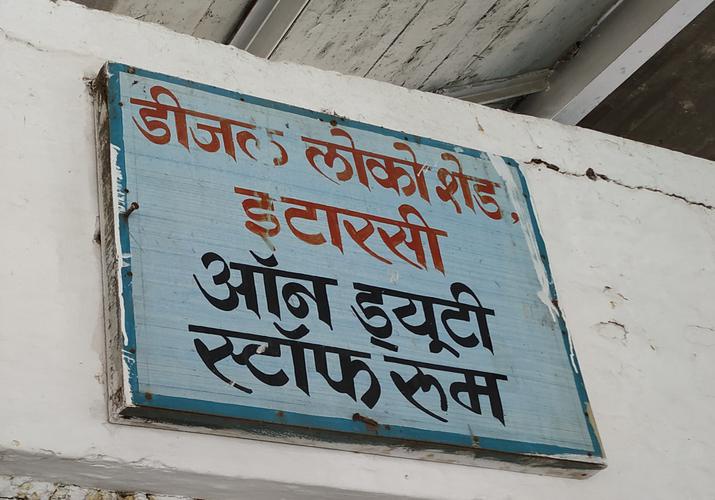 डीजल लोको शेड,
इटारसी
ऑन ड्यूटी
स्टॉफ रूम